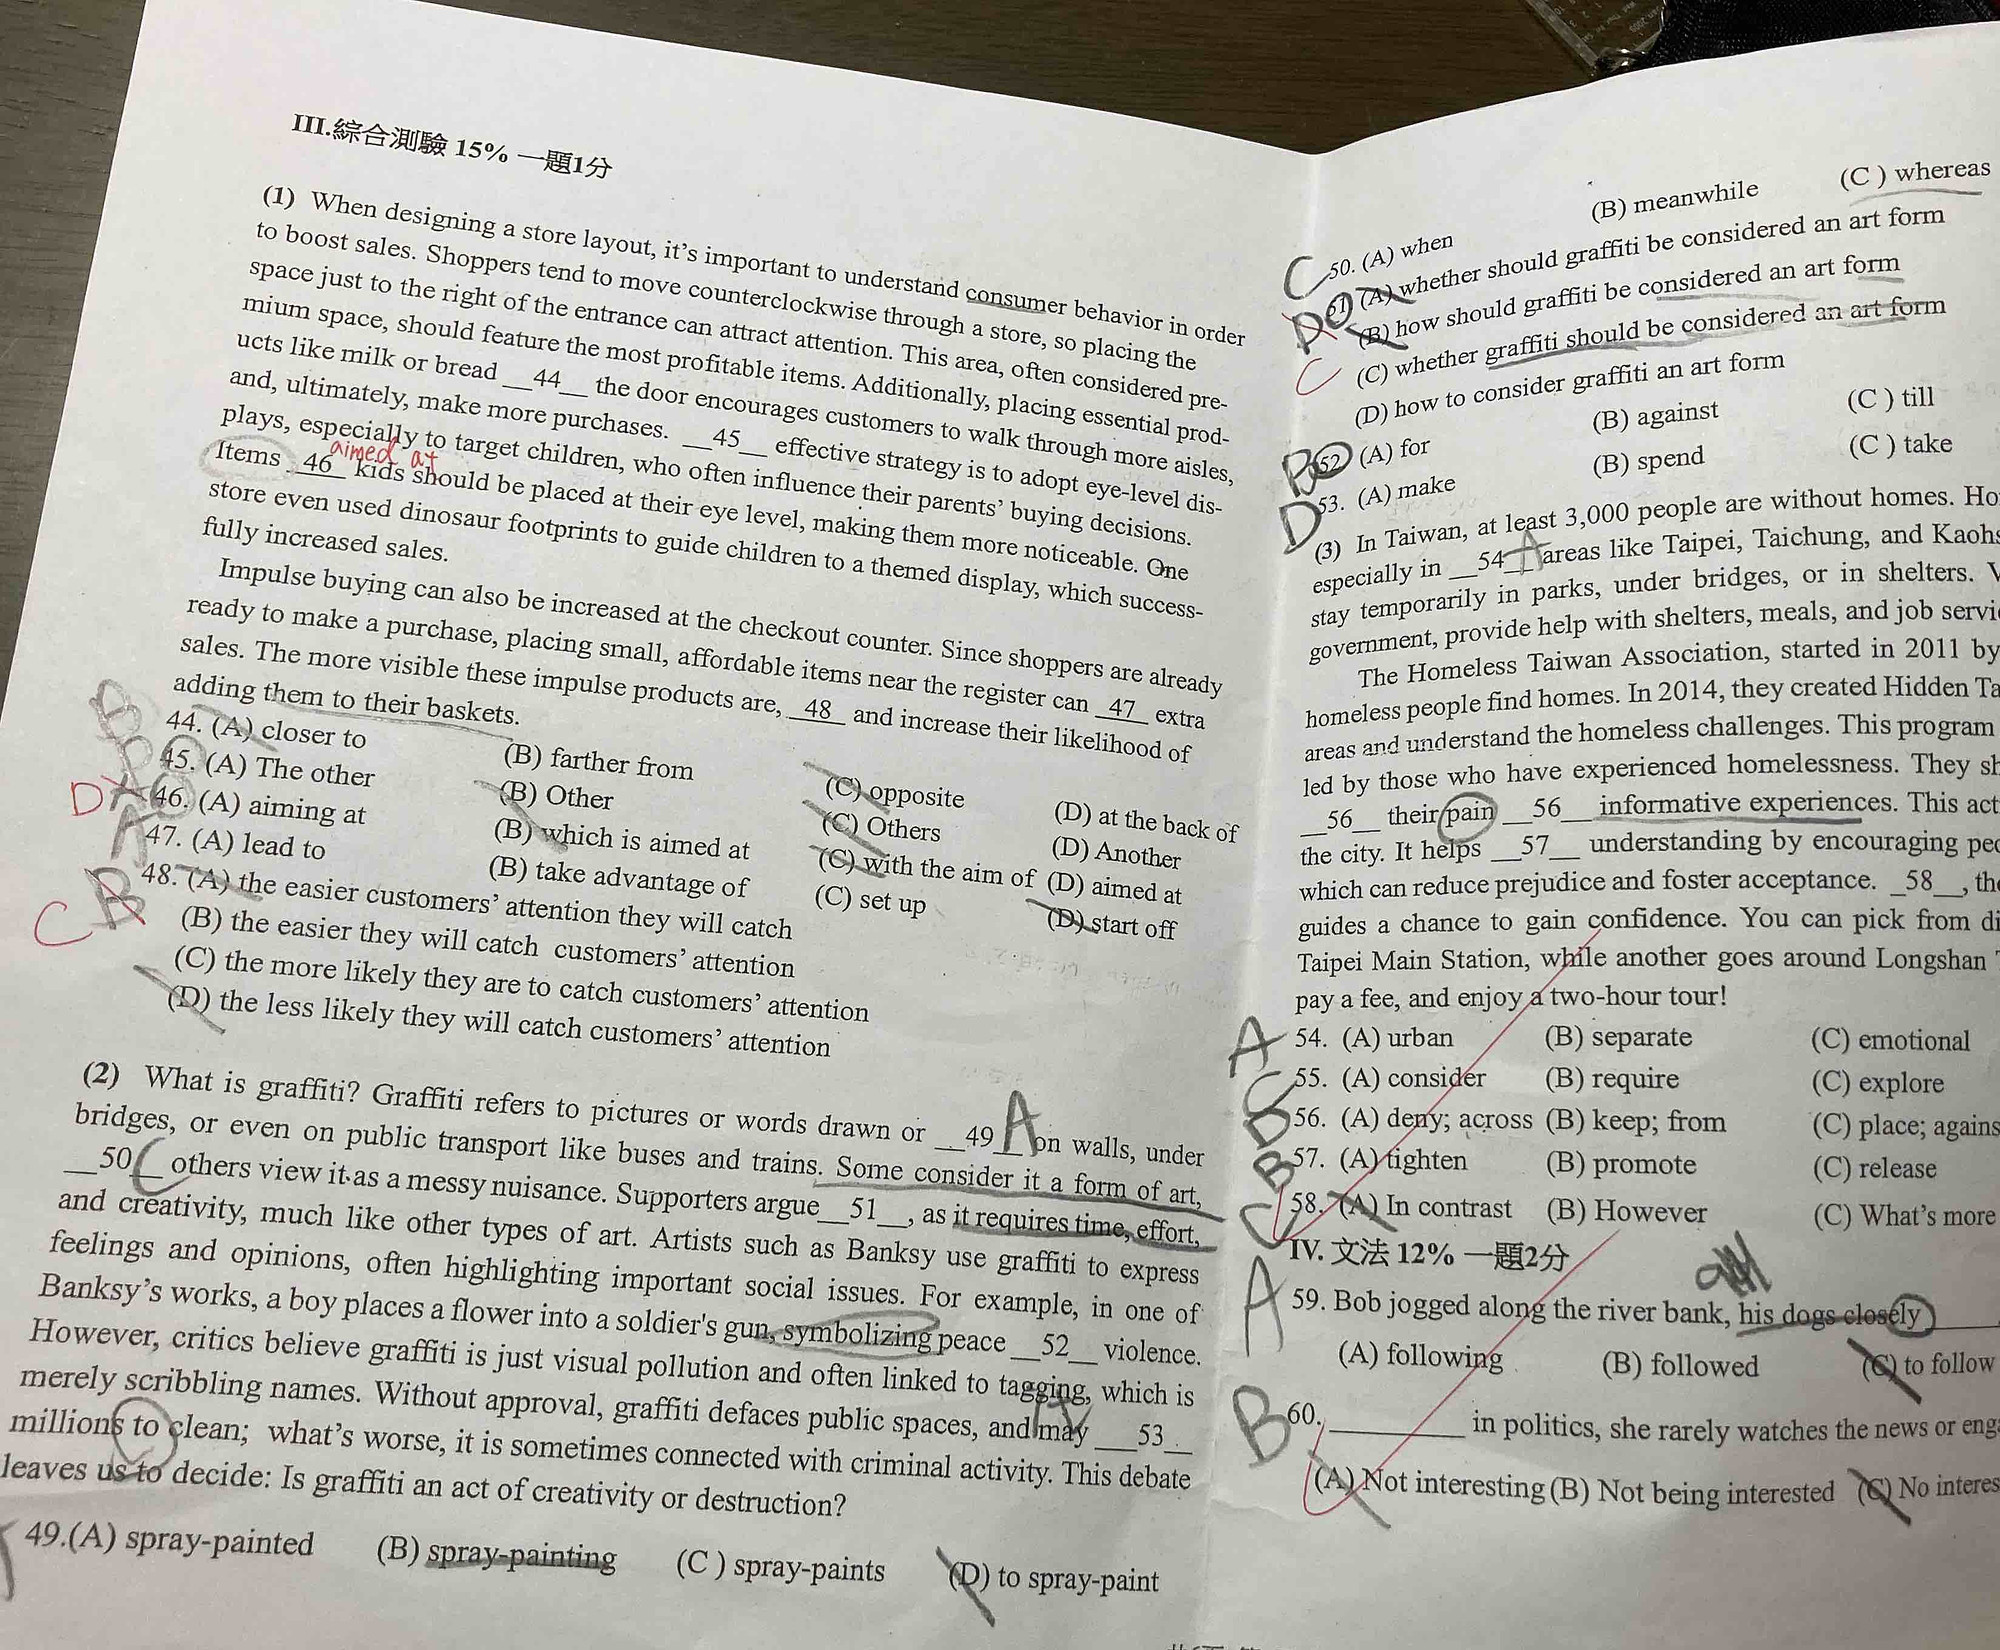 III.綜合測驗 15% 一題1分
(1) When designing a store layout, it's important to understand consumer behavior in order
to boost sales. Shoppers tend to move counterclockwise through a store, so placing the
space just to the right of the entrance can attract attention. This area, often considered pre-
mium space, should feature the most profitable items. Additionally, placing essential prod-
ucts like milk or bread __44__ the door encourages customers to walk through more aisles,
and, ultimately, make more purchases. __45__ effective strategy is to adopt eye-level dis-
plays, especially to target children, who often influence their parents' buying decisions.
aimed at
Items __46__ kids should be placed at their eye level, making them more noticeable. One
store even used dinosaur footprints to guide children to a themed display, which success-
fully increased sales.
Impulse buying can also be increased at the checkout counter. Since shoppers are already
ready to make a purchase, placing small, affordable items near the register can __47__ extra
sales. The more visible these impulse products are, __48__ and increase their likelihood of
adding them to their baskets.
B 44. (A) closer to (B) farther from (C) opposite (D) at the back of
D 45. (A) The other (B) Other (C) Others (D) Another
D A 46. (A) aiming at (B) which is aimed at (C) with the aim of (D) aimed at
A 47. (A) lead to (B) take advantage of (C) set up (D) start off
C B 48. (A) the easier customers' attention they will catch
(B) the easier they will catch customers' attention
(C) the more likely they are to catch customers' attention
(D) the less likely they will catch customers' attention
(2) What is graffiti? Graffiti refers to pictures or words drawn or __49__ A on walls, under
bridges, or even on public transport like buses and trains. Some consider it a form of art,
__50__ C others view it as a messy nuisance. Supporters argue__51__, as it requires time, effort,
and creativity, much like other types of art. Artists such as Banksy use graffiti to express
feelings and opinions, often highlighting important social issues. For example, in one of
Banksy's works, a boy places a flower into a soldier's gun, symbolizing peace __52__ violence.
However, critics believe graffiti is just visual pollution and often linked to tagging, which is
merely scribbling names. Without approval, graffiti defaces public spaces, and may __53__
millions to clean; what's worse, it is sometimes connected with criminal activity. This debate
leaves us to decide: Is graffiti an act of creativity or destruction?
49.(A) spray-painted (B) spray-painting (C ) spray-paints (D) to spray-paint
C 50. (A) when (B) meanwhile (C ) whereas
(A) whether should graffiti be considered an art form
(B) how should graffiti be considered an art form
C (C) whether graffiti should be considered an art form
(D) how to consider graffiti an art form
B 52. (A) for (B) against (C ) till
D 53. (A) make (B) spend (C ) take
(3) In Taiwan, at least 3,000 people are without homes. Ho
especially in __54__ A areas like Taipei, Taichung, and Kaohs
stay temporarily in parks, under bridges, or in shelters.
government, provide help with shelters, meals, and job servi
The Homeless Taiwan Association, started in 2011 by
homeless people find homes. In 2014, they created Hidden Ta
areas and understand the homeless challenges. This program
led by those who have experienced homelessness. They sh
__56__ their pain __56__ informative experiences. This act
the city. It helps __57__ understanding by encouraging peo
which can reduce prejudice and foster acceptance. __58__, the
guides a chance to gain confidence. You can pick from di
Taipei Main Station, while another goes around Longshan
pay a fee, and enjoy a two-hour tour!
A 54. (A) urban (B) separate (C) emotional
C 55. (A) consider (B) require (C) explore
D 56. (A) deny; across (B) keep; from (C) place; agains
B 57. (A) tighten (B) promote (C) release
C 58. (A) In contrast (B) However (C) What's more
IV. 文法 12% 一題2分
A 59. Bob jogged along the river bank, his dogs closely ____
(A) following (B) followed (C) to follow
B 60. ________ in politics, she rarely watches the news or eng
(A) Not interesting (B) Not being interested (C) No interes